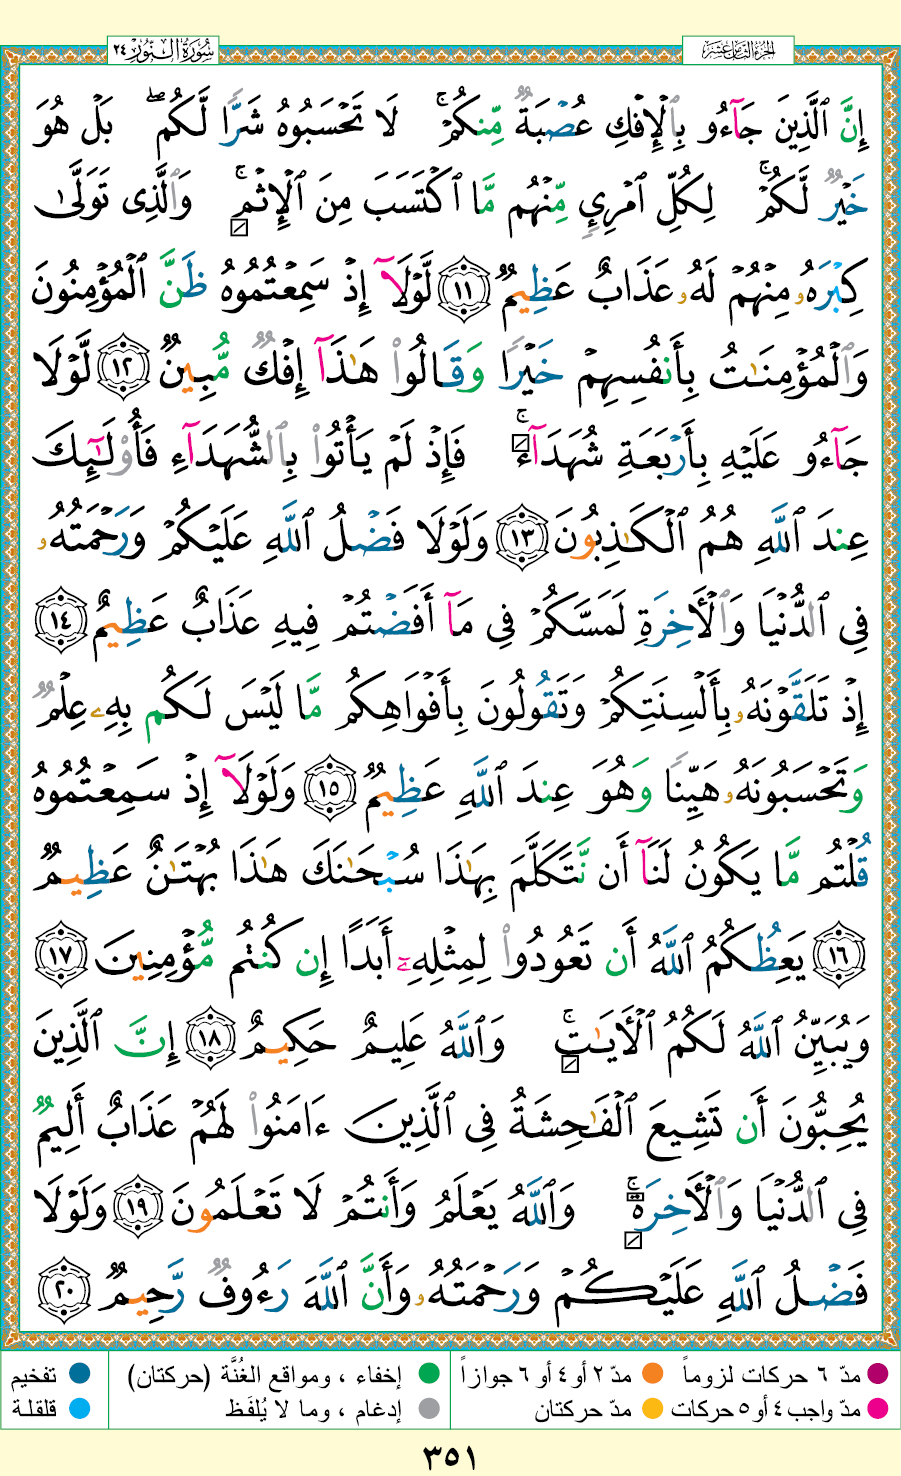 سُورَةُ النُّورِ ٢٤
الجزء الثامن عشر
إِنَّ ٱلَّذِينَ جَآءُو بِٱلْإِفْكِ عُصْبَةٌ مِّنكُمْ ۚ لَا تَحْسَبُوهُ شَرًّا لَّكُم ۖ بَلْ هُوَ
خَيْرٌ لَّكُمْ ۚ لِكُلِّ ٱمْرِئٍ مِّنْهُم مَّا ٱكْتَسَبَ مِنَ ٱلْإِثْمِ ۚ وَٱلَّذِى تَوَلَّىٰ
كِبْرَهُۥ مِنْهُمْ لَهُۥ عَذَابٌ عَظِيمٌ ١١ لَّوْلَآ إِذْ سَمِعْتُمُوهُ ظَنَّ ٱلْمُؤْمِنُونَ
وَٱلْمُؤْمِنَٰتُ بِأَنفُسِهِمْ خَيْرًا وَقَالُوا۟ هَٰذَآ إِفْكٌ مُّبِينٌ ١٢ لَّوْلَا
جَآءُو عَلَيْهِ بِأَرْبَعَةِ شُهَدَآءَ ۚ فَإِذْ لَمْ يَأْتُوا۟ بِٱلشُّهَدَآءِ فَأُو۟لَٰٓئِكَ
عِندَ ٱللَّهِ هُمُ ٱلْكَٰذِبُونَ ١٣ وَلَوْلَا فَضْلُ ٱللَّهِ عَلَيْكُمْ وَرَحْمَتُهُۥ
فِى ٱلدُّنْيَا وَٱلْءَاخِرَةِ لَمَسَّكُمْ فِى مَآ أَفَضْتُمْ فِيهِ عَذَابٌ عَظِيمٌ ١٤
إِذْ تَلَقَّوْنَهُۥ بِأَلْسِنَتِكُمْ وَتَقُولُونَ بِأَفْوَاهِكُم مَّا لَيْسَ لَكُم بِهِۦ عِلْمٌ
وَتَحْسَبُونَهُۥ هَيِّنًا وَهُوَ عِندَ ٱللَّهِ عَظِيمٌ ١٥ وَلَوْلَآ إِذْ سَمِعْتُمُوهُ
قُلْتُم مَّا يَكُونُ لَنَآ أَن نَّتَكَلَّمَ بِهَٰذَا سُبْحَٰنَكَ هَٰذَا بُهْتَٰنٌ عَظِيمٌ
١٦ يَعِظُكُمُ ٱللَّهُ أَن تَعُودُوا۟ لِمِثْلِهِۦٓ أَبَدًا إِن كُنتُم مُّؤْمِنِينَ ١٧
وَيُبَيِّنُ ٱللَّهُ لَكُمُ ٱلْءَايَٰتِ ۚ وَٱللَّهُ عَلِيمٌ حَكِيمٌ ١٨ إِنَّ ٱلَّذِينَ
يُحِبُّونَ أَن تَشِيعَ ٱلْفَٰحِشَةُ فِى ٱلَّذِينَ ءَامَنُوا۟ لَهُمْ عَذَابٌ أَلِيمٌ
فِى ٱلدُّنْيَا وَٱلْءَاخِرَةِ ۚ وَٱللَّهُ يَعْلَمُ وَأَنتُمْ لَا تَعْلَمُونَ ١٩ وَلَوْلَا
فَضْلُ ٱللَّهِ عَلَيْكُمْ وَرَحْمَتُهُۥ وَأَنَّ ٱللَّهَ رَءُوفٌ رَّحِيمٌ ٢٠
مدّ ٦ حركات لزوماً مدّ ٢ أو ٤ أو ٦ جوازاً إخفاء ، ومواقع الغُنَّة (حركتان) تفخيم
مدّ واجب ٤ أو ٥ حركات مدّ حركتان إدغام ، وما لا يُلفَظ قلقلة
٣٥١